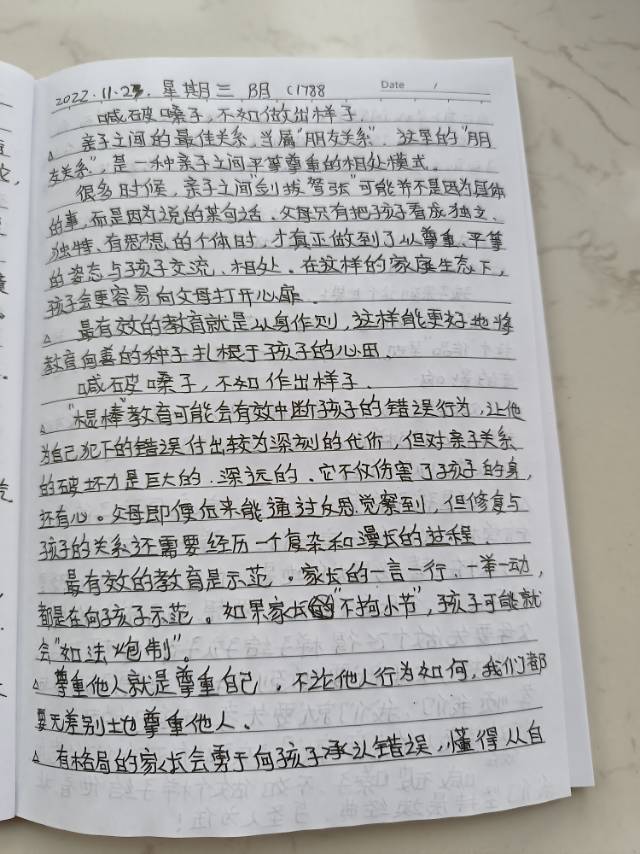 2022.11.23. 星期三 阴 (1788 Date /
喊破嗓子,不如做出样子.
△ 亲子之间的最佳关系,当属"朋友关系".这里的"朋
友关系",是一种亲子之间平等尊重的相处模式.
很多时候,亲子之间"剑拔弩张"可能并不是因为具体
的事,而是因为说的某句话.父母只有把孩子看成独立、
独特、有思想的个体时,才真正做到了从尊重、平等
的姿态与孩子交流、相处.在这样的家庭生态下,
孩子会更容易向父母打开心扉.
△ 最有效的教育就是以身作则,这样能更好地将
教育向善的种子扎根于孩子的心田.
喊破嗓子,不如作出样子.
△ "棍棒"教育可能会有效中断孩子的错误行为,让他
为自己犯下的错误付出较为深刻的代价,但对亲子关系
的破坏才是巨大的.深远的.它不仅伤害了孩子的身,
还有心。父母即便后来能通过反思觉察到,但修复与
孩子的关系还需要经历一个复杂和漫长的过程
最有效的教育是示范。家长的一言一行、一举一动,
都是在向孩子示范。如果家长"不拘小节",孩子可能就
会"如法炮制"。
△ 尊重他人就是尊重自己.不论他人行为如何,我们都
要无差别地尊重他人.
△ 有格局的家长会勇于向孩子承认错误,懂得从自